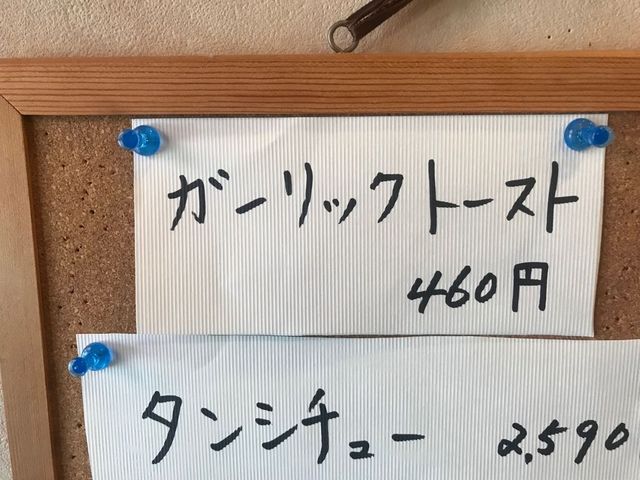 ガーリックトースト
460円
タンシチュー 2,590